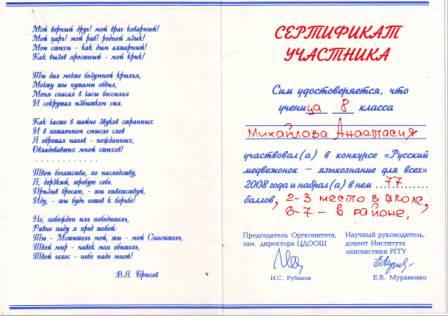 Мой верный друг! мой враг коварный!
Мой царь! мой раб! родной язык!
Мои стихи - как дым алтарный!
Как вызов яростный - мой крик!
Ты дал мечте безумной крылья,
Мечту ты путами обвил,
Меня спасал в часы бессилья
И сокрушал избытком сил.
Как часто в тайне звуков странных
И в потаенном смысле слов
Я обретал напев - нежданных,
Овладевавших мной стихов!
. . . . . . . . . . . .
Твои богатства, по наследству,
Я, дерзкий, требую себе.
Призыв бросаю, - ты ответствуй,
Иду, - ты будь готов к борьбе!
Но, побежден или победитель,
Равно паду я пред тобой:
Ты - Мститель мой, ты - мой Спаситель,
Твой мир - навек моя обитель,
Твой голос - небо надо мной!
В.Я. Брюсов
СЕРТИФИКАТ
УЧАСТНИКА
Сим удостоверяется, что
ученица 8 класса
Михайлова Анастасия
участвовал(а) в конкурсе «Русский
медвежонок – языкознание для всех»
2008 года и набрал(а) в нем 77
баллов, 2-3 место в школе,
6-7 - в районе.
Председатель Оргкомитета,
зам. директора ЦДООШ
И.С. Рубанов
Научный руководитель,
доцент Института
лингвистики РГГУ
Е.В. Муравенко